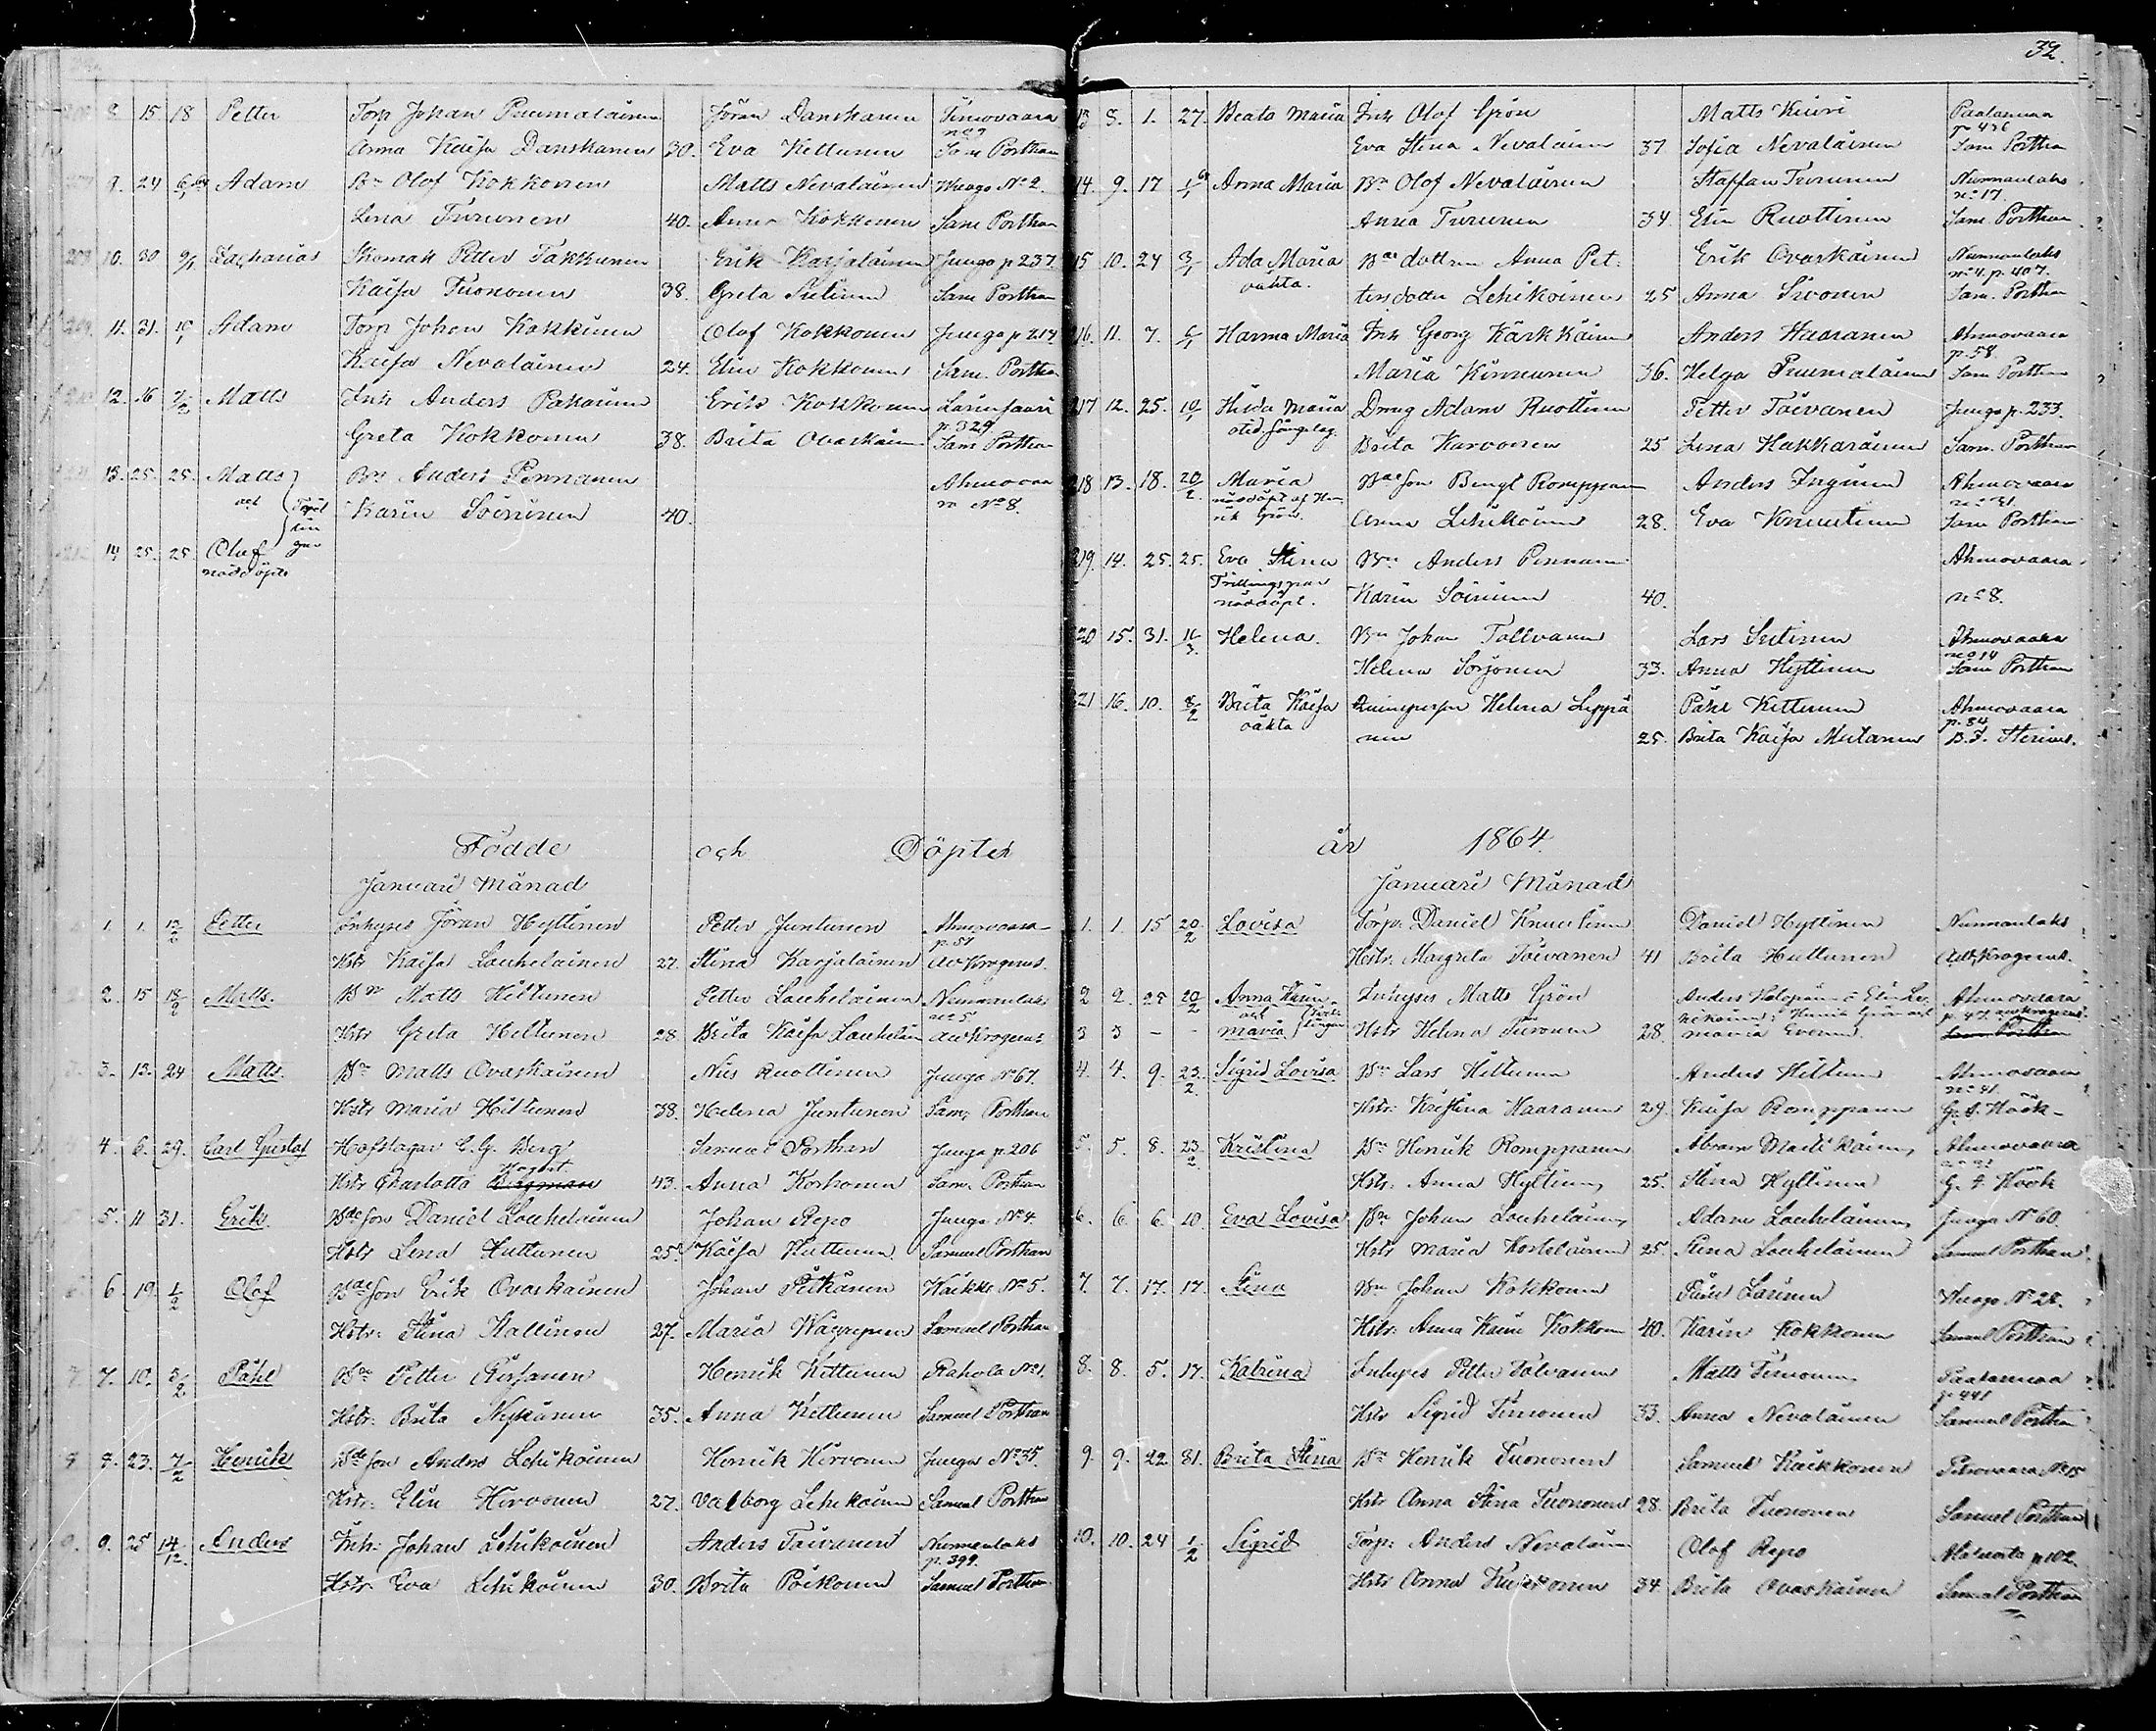 8. 15 18 Petter Torp Johan Puumalainen Jöran Danskanen Timovaara
Anna Kaisa Danskanen 30. Eva Kettunen Sam Porthan
9. 24 6/1 64 Adam Bn Olof Kokkonen Matts Nevalainen No 2.
Lena Turunen 40. Anna Kokkonen Sam Porthan
10. 30 9/1 Zacharias Skomak Petter Takkunen Erik Karjalainen Junga p 237.
Kaisa Tuononen 38. Greta Sutinen Sam Porthan
11. 31. 10/1 Adam Torp Johan Kokkonen Olof Kokkonen Junga p 217
Kaisa Nevalainen 24. Elin Kokkonen Sam. Porthan
12. 16 7/2 Matts Inh Anders Pakarinen Erik Kokkonen Larinsaari
p. 329
Greta Kokkonen 38. Brita Ovaskainen Sam Porthan
13. 25. 25. Matts Bn Anders Pennanen Ahmovaa
och Karin Soininen 40. ra No 8.
14 25. 25. Olof
nöddöpte
Födde och Döpter
Januari Månad
1. 1. 12/2 Petter Inhyses Jöran Hyttinen Petter Juntunen Ahmovaara
p. 51
Hstr Kaisa Louhelainen 27. Stina Karjalainen av Krogerus.
2. 15 18/2 Matts. Bn Matts Hiltunen Petter Louhelainen Nunnanlaks
no 5
Hstr Greta Hiltunen 28 Brita Kaisa Louhelain av Krogerus
3. 13. 24 Matts Bn Matts Ovaskainen Nils Ruottinen Junga No 67.
Hstr Maria Hiltunen 38. Helena Juntunen Sam. Porthan
4. 6. 29. Carl Gustaf Hofslagar C. G. Berg Samuel Porthan Junga p. 206
Hstr Charlotta 43. Anna Korhonen Sam. Porthan
5. 11 31. Erik Bdeson Daniel Louhelainen Johan Repo Junga No 4.
Hstr Lena Huttunen 25. Kaisa Huttunen Samuel Porthan
6 19. 1/2 Olof Bdeson Erik Ovaskainen Johan Pitkänen No 5.
Hstr: Stina Kallinen 27. Maria Samuel Porthan
7. 10. 5/2 Påhl Bn Petter Piirainen Henrik Kettunen Rahola No 1.
Hstr: Brita Nykänen 35. Anna Kettunen Samuel Porthan
8. 23. 7/2 Henrik Bdeson Anders Lehikoinen Henrik Hirvonen Junga No 35.
Hstr: Elin Hirvonen 27. Valborg Lehikoinen Samuel Porthan
9. 25 14/12. Anders Inh: Johan Lehikoinen Anders Taivanen Nunnanlaks
p. 399.
Hstr Eva Lehikoinen 30. Brita Poikonen Samuel Porthan
32.
8. 1. 27. Beata Maria Inh Olof Grön Matts Kuiri Paalasmaa
p 436
Eva Stina Nevalainen 37 Sofia Nevalainen Sam Porthan
14. 9. 17 6/1 Anna Maria Bn Olof Nevalainen Staffan Turunen Nunnanlaks
no 17.
Anna Turunen 34. Elin Ruottinen Sam. Porthan
15 10. 24 3/1 Ada Maria Bdedottren Anna Pet: Erik Ovaskainen Nunnanlaks
oäkta. no 4. p. 407.
tersdotter Lehikoinen 25 Anna Sivonen Sam. Porthan
216. 11. 7. 6/1 Hanna Maria Inh Georg Kärkkäinen Anders Haaranen Ahmovaara
p. 58.
Maria Kinnunen 36. Helga Puumalainen Sam Porthan
217 12. 25. 10/1 Hilda Maria Dräng Adam Ruottinen Petter Toivanen Junga p. 233.
Brita Karvonen 25 Lena Hakkarainen Sam. Porthan
218 13. 18. 20/2. Maria Bdeson Bengt Romppanen Anders Inginen Ahmovaara
nöddöpt af Hen no 31.
rik Grön. Anna Lehikoinen 28. Eva Knuutinen Sam Porthan
219. 14. 25. 25. Eva Stina Bn Anders Pennanen Ahmovaara
Trillingspar
nöddöpt. Karin Soininen 40. no 8.
220 15. 31. 11/3. Helena. Bn Johan Tolvanen Lars Sutinen Ahmovaara
no 14
Helena Sorjonen 33. Anna Hyttinen Sam Porthan
221 16. 10. 8/2 Brita Kaisa Qvinsperson Helena Leppä Påhl Kettunen Ahmovaara
oäkta p. 84
nen 25. Brita Kaisa Mutanen
år 1864.
Januari Månad
1. 1. 15 20/2 Lovisa Torp. Daniel Knuutinen Daniel Hyttinen Nunnanlaks
Hstr. Margreta Toivanen 41 Brita Huttunen Adolf Krogerus.
2 2. 25 20/2 Anna Karin Inhyses Matts Grön
och
3 3 – – Maria Hstr Helena Turunen 28. Maria Evonen
4. 4. 9. 23/2. Sigrid Lovisa Bn Lars Hiltunen Anders Hiltunen Ahmovaara
no 41.
Hstr: Kristina Haaranen 29. Kaisa Romppanen G. F. Höök
5. 5. 8. 23/2 Kristina Bn Henrik Romppanen Abram Martikainen Ahmovaara
Hstr. Anna Hyttinen 25. Stina Hyttinen G. F. Höök
6. 6. 6. 10. Eva Lovisa Bn Johan Louhelainen Adam Louhelainen Junga No 60.
Hstr Maria Kortelainen 25. Stina Louhelainen Samuel Porthan
7. 7. 17. 17. Stina Bn Johan Kokkonen Påhl Larinen No 28.
Hstr. Anna Karin Kokkonen 40. Karin Kokkonen Samuel Porthan
8. 8. 5. 17. Katrina Inhyses Petter Tolvanen Matts Timonen Paalasmaa
p 441
Hstr Sigrid Timonen 33. Anna Nevalainen Samuel Porthan
9. 9. 22 31. Brita Stina Bn Henrik Tuononen Samuel Kaikkonen Petrovaara No 15
Hstr Anna Stina Tuononen 28. Brita Tuononen Samuel Porthan
10. 10. 24 1/2 Sigrid Torp: Anders Nevalainen Olof Repo p 102.
Hstr Anna 34. Brita Ovaskainen Samuel Porthan